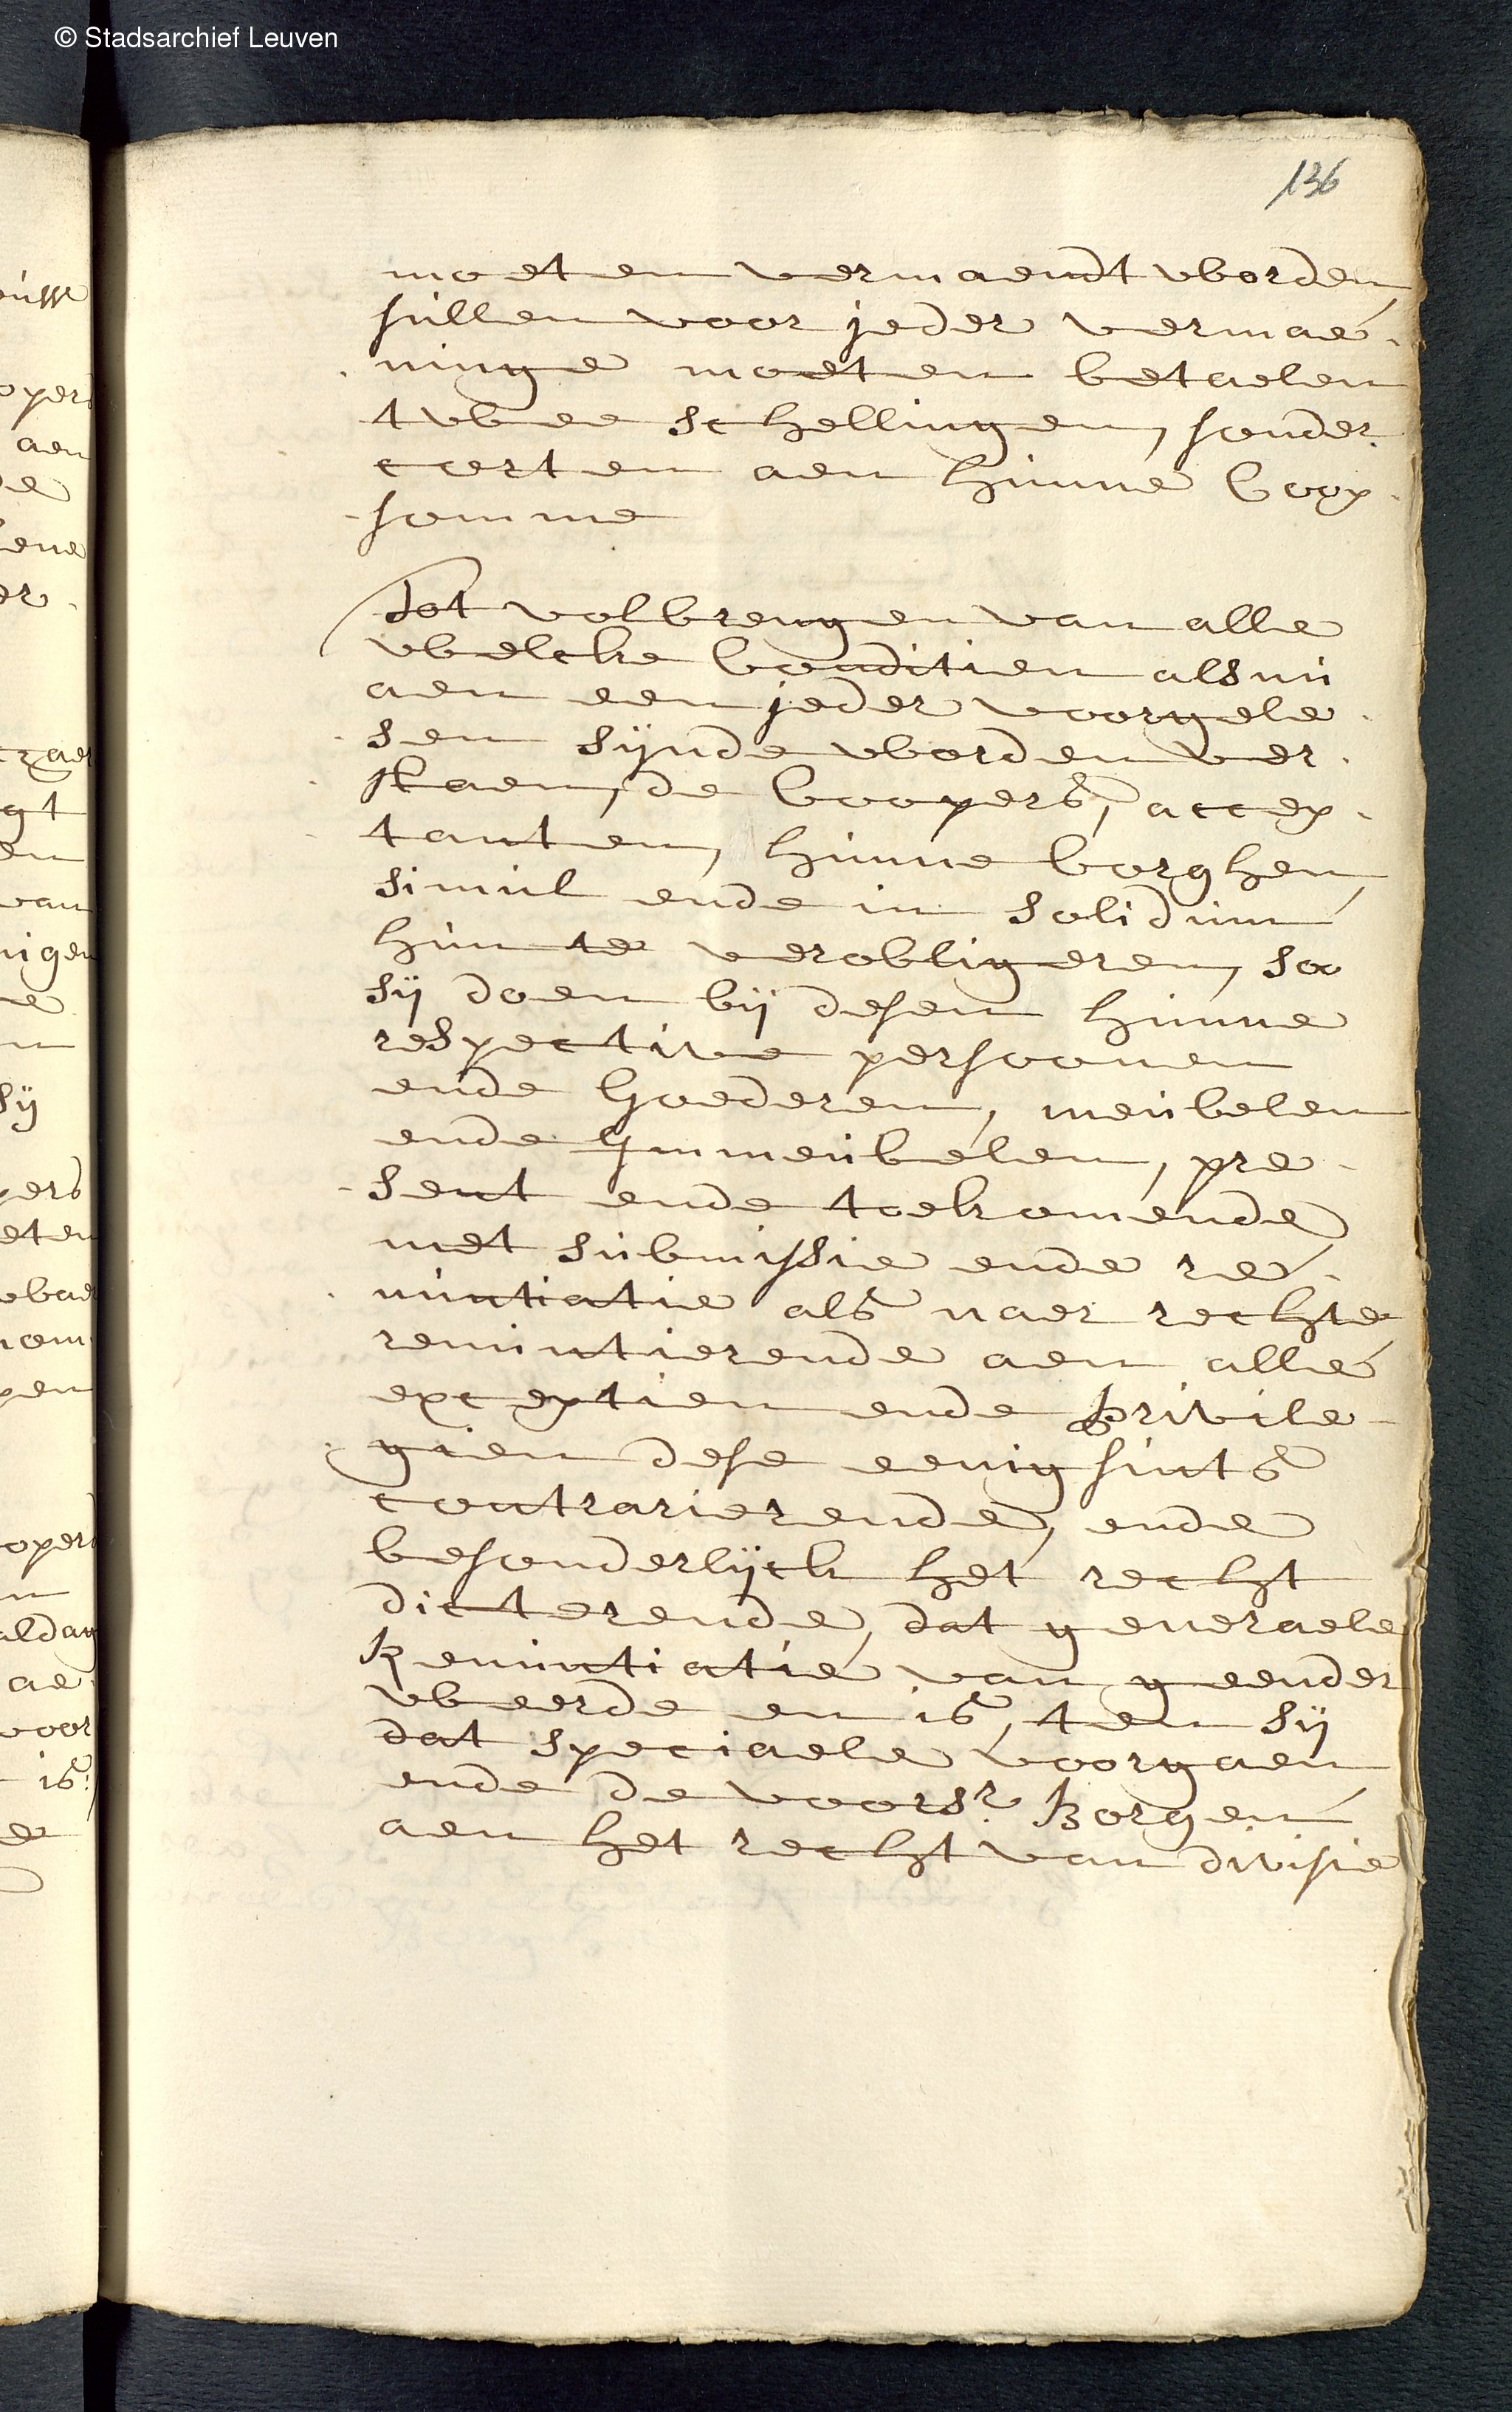 © Stadsarchief Leuven
136
moeten vermaendt worden
sullen voor jeder vermae-
ninge moeten betaelen
twee schellingen, sonder
corten aen hunne Coop-
somme
Tot volbrengen van alle
welcke Conditien als nu
aen een jeder voorgele-
sen sijnde worden ver-
staen, de Coopers, accep-
tanten, hunne borghen,
simul ende in solidum
hun te verobligeren, soo
sij doen bij desen hunne
respective persoonen
ende Goederen, meubelen
ende Immeubelen, pre-
sent ende toekomende
met submissie ende re-
nuntiatie als naer rechte
renuntierende aen alle
exceptien ende Privile-
gien dese eenigsints
contrarierende, ende
besonderlijck het recht
dicterende, dat generaele
Renuntiatie van geender
weerde en is, ten sij
dat speciaele voorgaen
ende de voorsr. Borgen
aen het recht van divisie